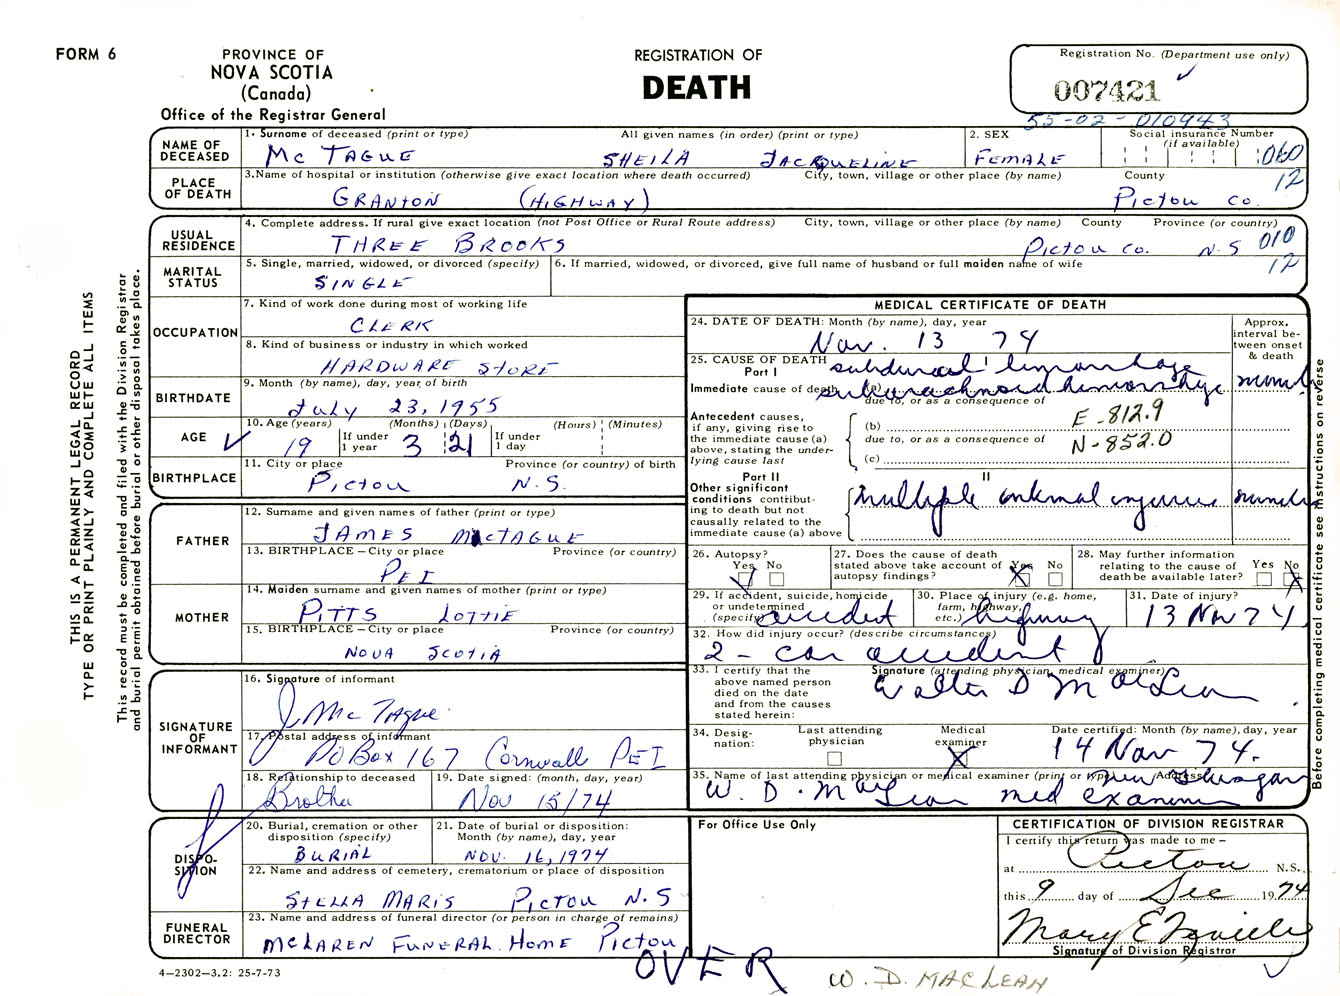 FORM 6
PROVINCE OF
NOVA SCOTIA
(Canada)
Office of the Registrar General
REGISTRATION OF
DEATH
Registration No. (Department use only)
007421
55-02-010943
NAME OF DECEASED
1. Surname of deceased (print or type) All given names (in order) (print or type)
Mc TAGUE SHEILA JACQUELINE
2. SEX
FEMALE
Social insurance Number
(if available)
060
12
PLACE OF DEATH
3. Name of hospital or institution (otherwise give exact location where death occurred) City, town, village or other place (by name) County
GRANTON (HIGHWAY) Pictou Co.
USUAL RESIDENCE
4. Complete address. If rural give exact location (not Post Office or Rural Route address) City, town, village or other place (by name) County Province (or country)
THREE BROOKS Pictou Co. N.S
010
12
MARITAL STATUS
5. Single, married, widowed, or divorced (specify)
SINGLE
6. If married, widowed, or divorced, give full name of husband or full maiden name of wife
OCCUPATION
7. Kind of work done during most of working life
CLERK
8. Kind of business or industry in which worked
HARDWARE STORE
BIRTHDATE
9. Month (by name), day, year, of birth
July 23, 1955
AGE
10. Age (years) (Months) (Days) (Hours) (Minutes)
19 If under 1 year 3 21 If under 1 day
BIRTHPLACE
11. City or place Province (or country) of birth
Pictou N.S.
FATHER
12. Surname and given names of father (print or type)
JAMES McTAGUE
13. BIRTHPLACE – City or place Province (or country)
PEI
MOTHER
14. Maiden surname and given names of mother (print or type)
PITTS LOTTIE
15. BIRTHPLACE – City or place Province (or country)
NOVA SCOTIA
SIGNATURE OF INFORMANT
16. Signature of informant
J Mc Tague
17. Postal address of informant
PO Box 167 Cornwall PEI
18. Relationship to deceased
Brother
19. Date signed: (month, day, year)
Nov 15/74
DISPO-
SITION
20. Burial, cremation or other disposition (specify)
BURIAL
21. Date of burial or disposition: Month (by name), day, year
NOV. 16, 1974
22. Name and address of cemetery, crematorium or place of disposition
STELLA MARIS PICTOU N.S
FUNERAL DIRECTOR
23. Name and address of funeral director (or person in charge of remains)
McLAREN FUNERAL HOME Pictou
MEDICAL CERTIFICATE OF DEATH
24. DATE OF DEATH: Month (by name), day, year
Nov. 13 74
Approx. interval between onset & death
25. CAUSE OF DEATH
Part I
I
subdural hemorrhage
Immediate cause of death (a) subarachnoid hemorrhage
due to, or as a consequence of
Antecedent causes, if any, giving rise to the immediate cause (a) above, stating the underlying cause last
(b)
E-812.9
due to, or as a consequence of
N-852.0
(c)
Part II
II
Other significant conditions contributing to death but not causally related to the immediate cause (a) above
multiple internal injuries
26. Autopsy?
Yes No
27. Does the cause of death stated above take account of autopsy findings?
Yes No
28. May further information relating to the cause of death be available later?
Yes No
29. If accident, suicide, homicide or undetermined (specify)
accident
30. Place of injury (e.g. home, farm, highway, etc.)
highway
31. Date of injury?
13 Nov 74
32. How did injury occur? (describe circumstances)
2 - car accident
33. I certify that the above named person died on the date and from the causes stated herein:
Signature (attending physician, medical examiner)
Walter D MacLean
34. Designation:
Last attending physician
Medical examiner
Date certified: Month (by name), day, year
14 Nov 74.
35. Name of last attending physician or medical examiner (print or type) Address
W. D. MacLean med examiner New Glasgow
For Office Use Only
CERTIFICATION OF DIVISION REGISTRAR
I certify this return was made to me –
at Pictou N.S.
this 9 day of Dec 1974
Mary E
Signature of Division Registrar
4–2302–3.2: 25-7-73
OVER
W. D. MACLEAN
THIS IS A PERMANENT LEGAL RECORD
TYPE OR PRINT PLAINLY AND COMPLETE ALL ITEMS
This record must be completed and filed with the Division Registrar
and burial permit obtained before burial or other disposal takes place.
Before completing medical certificate see instructions on reverse